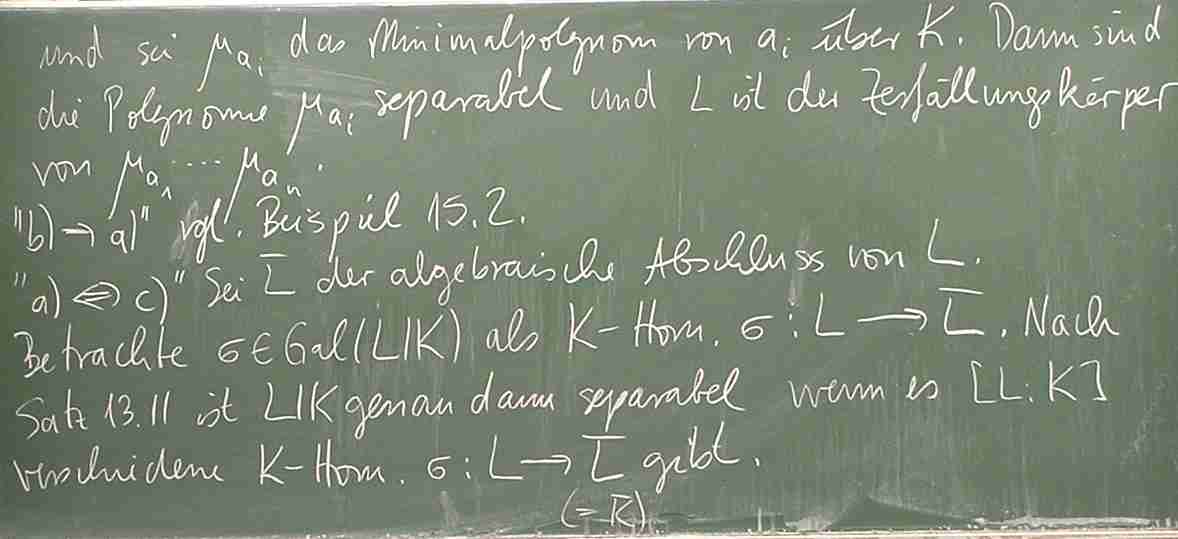 und sei μ_{a_i} das Minimalpolynom von a_i über K. Dann sind
die Polynome μ_{a_i} separabel und L ist der Zerfällungskörper
von μ_{a_1} ⋯ μ_{a_n}.
"b) → a)" vgl. Beispiel 15.2.
"a) ⇔ c)" Sei L̅ der algebraische Abschluss von L.
Betrachte σ ∈ Gal(L|K) als K-Hom. σ : L → L̅. Nach
Satz 13.11 ist L|K genau dann separabel wenn es [L:K]
verschiedene K-Hom. σ : L → L̅ gibt.
(= K̅)